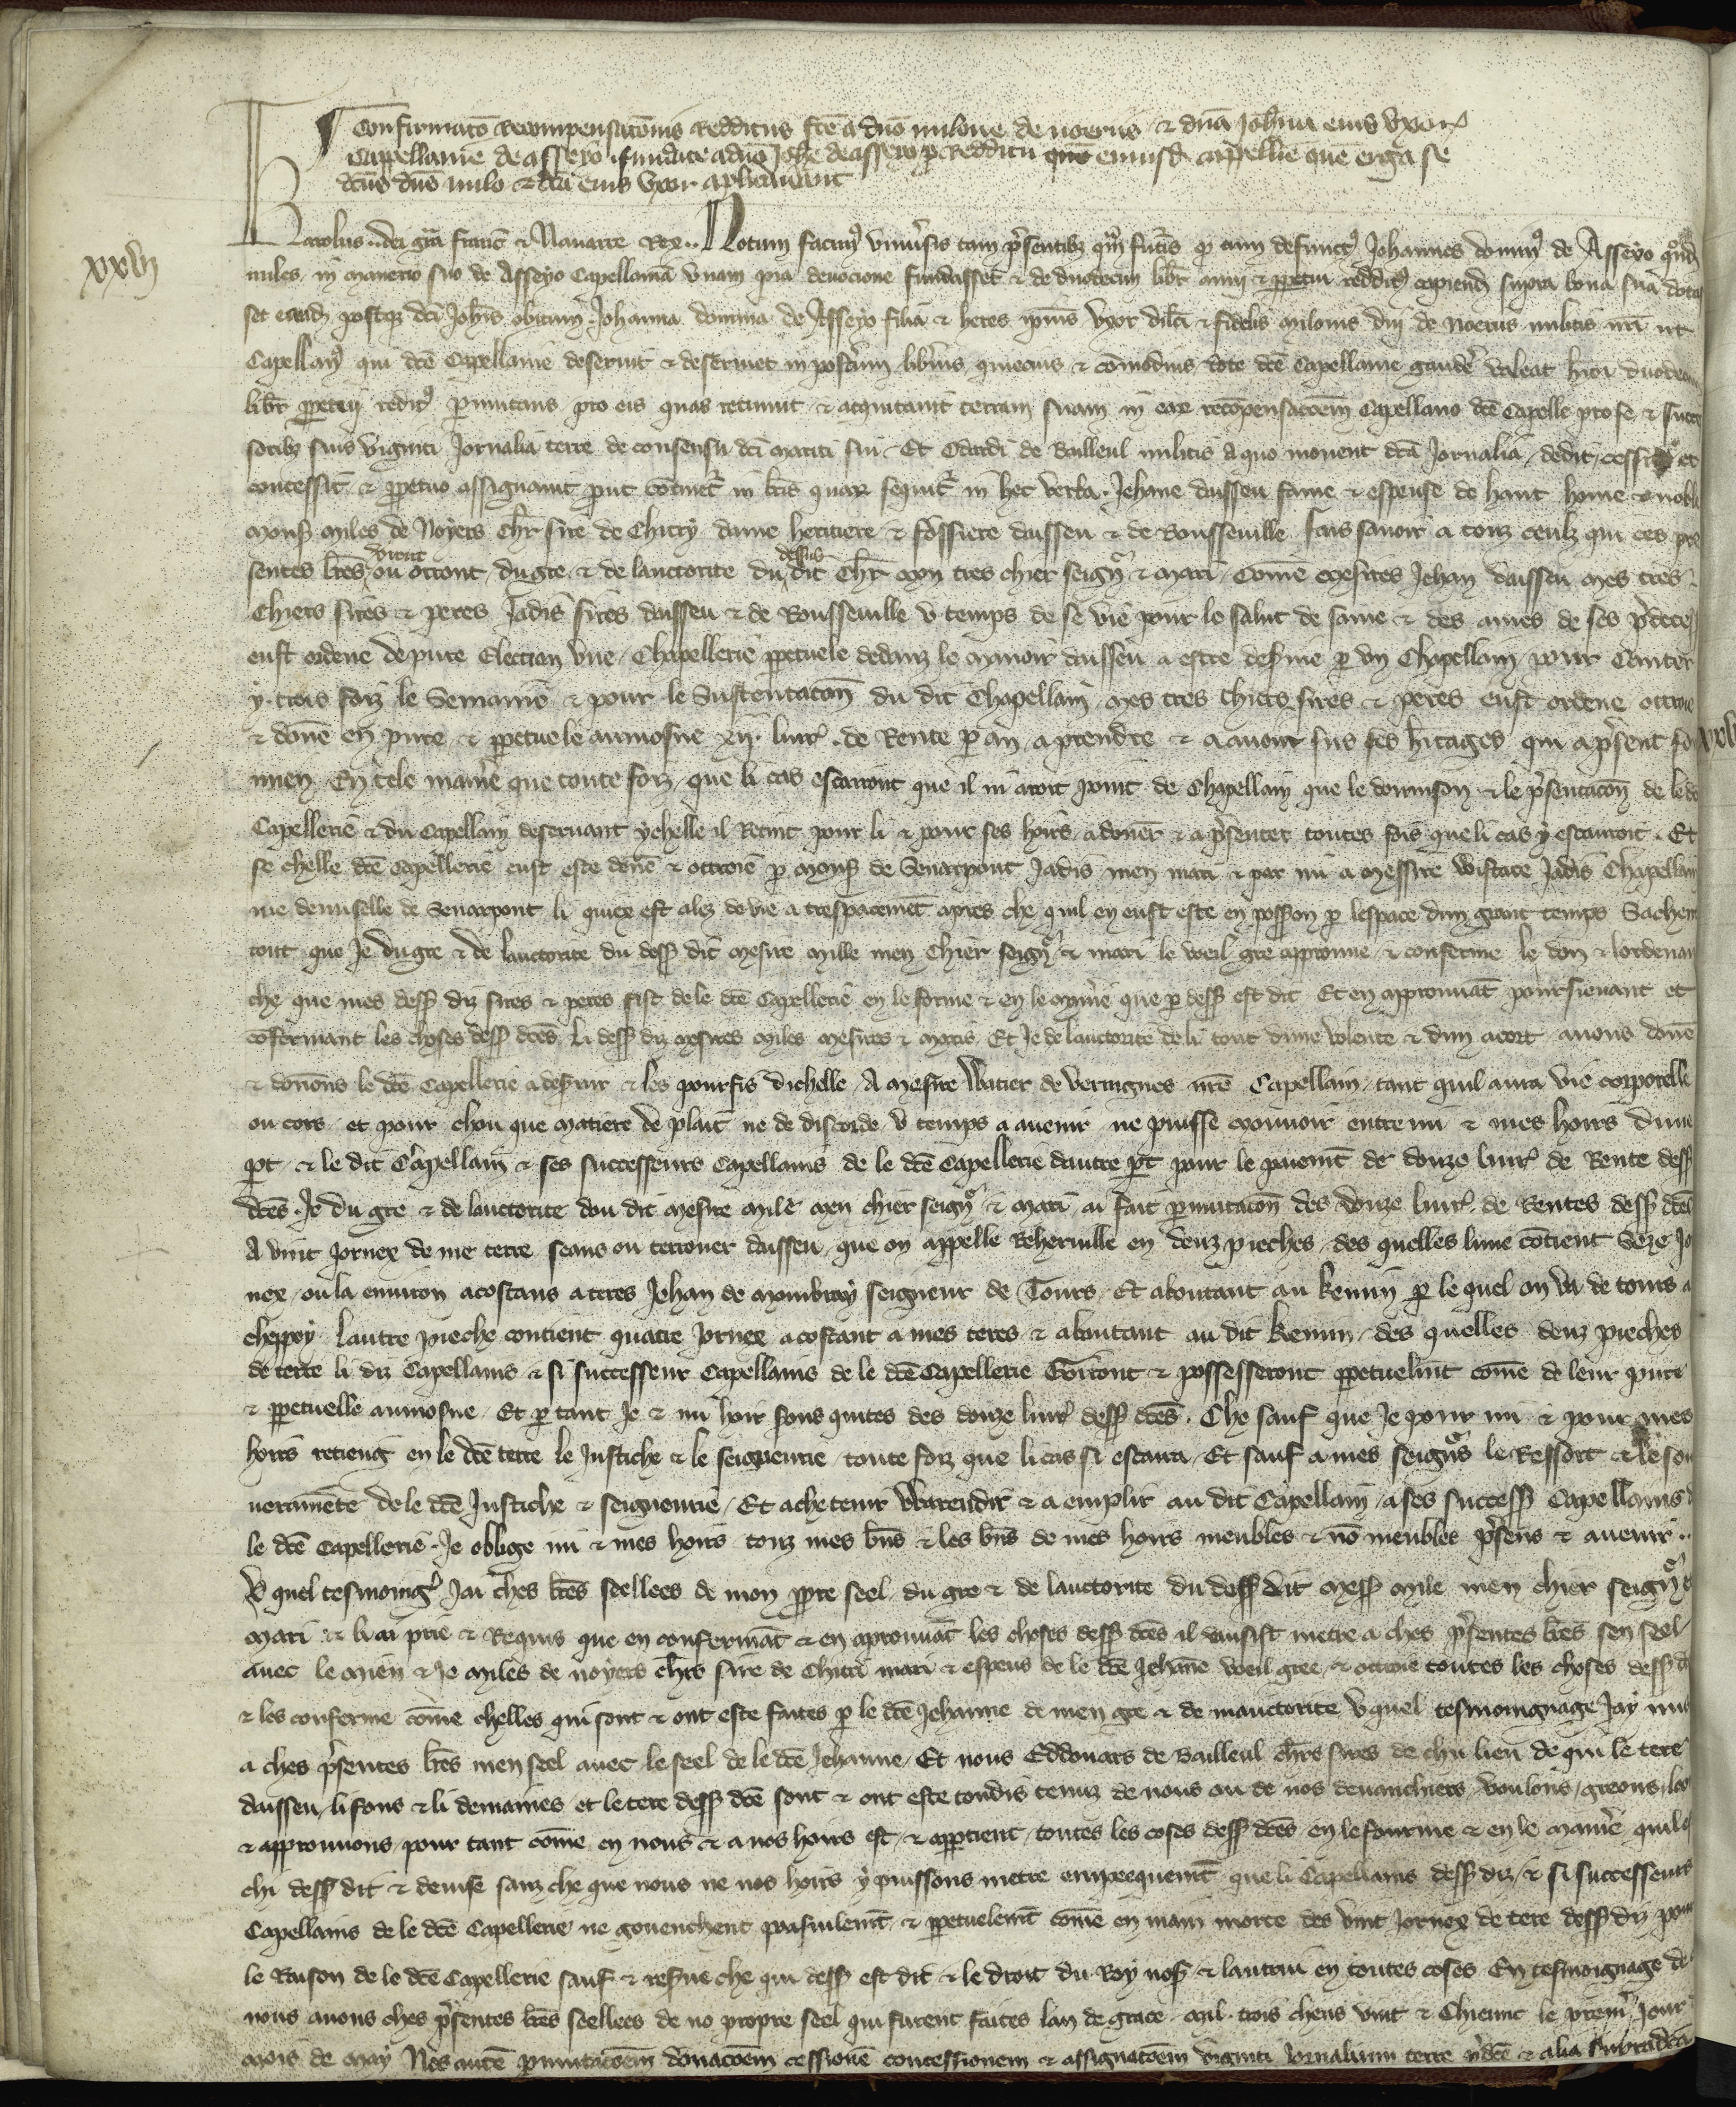 Confirmato Recompensatonis Redditus fce a dno milone de noeriis & dna Johna eius uxor
Cappellanie de asseyo fundate a duo Johe de asseyo p Redditu quo eiusd cappellie que erga se
dcus dns milo & dca eius uxor aplicaverant
xxvij
Karolus dei gra francie & Navarre Rex. Notum facimus universis tam presentibz qm futis q cum defunctus Johannes dominus de Asseyo qnd
miles in manerio suo de Asseyo Capellania unam pia devocione fundasset & de duodecim libr annui & ppetui redditus capiend supra bona sua dotas
set eand postqz dci Johis obitum Johanna domina de Asseyo filia & heres ipius uxor dilci & fidelis milonis dni de Noeriis militis nri ut
Capellanus qui dce Capellanie deservit & deserviet in postum libius quiecius & comodius dote dce Capellanie gaudere valeat huiusmodi duodecim
libr ppetui redditus pmutans pro eis quas retinuit & acquitavit terram suam in eax recopensacoem Capellano dce Capelle pro se & succes
soribz suis viginti Jornalia terre de consensu dci mariti sui Et Odardi de Bailleul militis a quo movent dca Jornalia dedit cessit et
concessit & ppetuo assignavit put cotinet in lris quax sequit in hec verba. Jehane daisseu fame & espeuse de haut home & noble
mons miles de Noyers chr sire de Chitry dame heritiere & fossiere daisseu & de Rousseville fais savoir a touz ceulz qui ces pre
sentes lres verront ou orront du gre & de lauctorite du dessus dit chr mon tres chier seignr & mari Come mesires Jehan daisseu mes tres
Chiers sires & peres Jadis sires daisseu & de Rousseville u temps de se vie pour le salut de same & des ames de ses predeces
eust ordene de pure Election une Chapellerie ppetuele dedanz le manoir daisseu a estre deservie p un Chapellain pour Canter
y trois foiz le Semaine & pour le Sustentacon du dit Chapellain mes tres chiers sires & peres eust ordene ottroie
& done en pure & ppetuele aumosne xij livr de Rente p an a prendre & a avoir sus ses hitages qui a present so
mien En tele manie que toute foiz que li cas escarroit que il ni aroit point de Chapellain que le donnison & le presentacon de le dce
Capellerie & du Capellain deservant ychelle il Retint pour li & pour ses hoirs a doner & a presenter toutes fois que li cas y escarroit. Et
se chelle dce Capellerie eust este done & ottroie p mons de Senarpont Jadis men mari & par mi a messire Wistace Jadis Chapellain
me demiselle de Senarpont li quiex est alez de vie a trespacement apres che quil en eust este en possion p lespace dun grant temps Sachent
tout que Je du gre & de lauctorite du dess dit mesire mille men chier seignr & mari le weil gre approuve & conferme le don & lordenan
che que mes dess diz sires & peres fist de le dce Capellerie en le forme & en le manie que p dess est dit Et en approuvat poursievant et
cofermant les choses dess dces li dess diz mesires miles mesires & maris Et Je de lauctorite de li tout dune volente & dun acort avons done
& donons le dce Capellerie a deservir & les pourfis dichelle A mesire Watier de vertuignes nre Capellain tant quil aura vie corporelle
ou cors et pour chou que matiere de plait ne de discorde u temps a avenir ne puisse mouvoir entre mi & mes hoirs dune
pt & le dit Capellain & ses successeurs Capellains de le dce Capellerie dautre pt pour le paiemt de douze livr de Rente dess
dces Je du gre & de lauctorite dou dit mesire mile men chier seignr & mari ai fait pmutacon des douze livr de Rentes dess dces
A vint Jornex de me terre seans ou terrouer daisseu que on appelle Reherville en deuz pieches des quelles lune cotient Seze Jo
nex ou la environ acostans a terres Jehan de mombray seigneur de Tours Et aboutant au kemin p le quel on va de tours a
cheppoy lautre pieche contient quatre Jornex acostant a mes teres & aboutant au dit kemin des quelles deuz pieches
de terre li diz Capellains & si successeur Capellains de le dce Capellerie Goiront & possesseront ppetuelmt come de leur pure
& ppetuelle aumosne Et p tant Je & mi hoir sons quites des douze livr dess dces. Che sauf que Je pour mi & pour mes
hoirs retieng en le dce terre le Justiche & le seigneurie toute foiz que li cas si escarra Et sauf a mes seignrs le Ressort & le sou
verainete de le dce Justiche & seigneurie Et a che tenir Warendir & aemplir au dit Capellain a ses success Capellains d
le dce Capellerie Je oblige mi & mes hoirs touz mes bns & les bns de mes hoirs meubles & no meubles presens & avenir..
U quel tesmoing Jai ches lres seellees de mon ppre seel du gre & de lauctorite du dess dit mess mile men chier seignr e
mari & li ai prie & Requis que en confermat & en aprouvat les choses dess dces il vausist metre a ches presentes lres sen seel
avec le mien & Je miles de noyers chrs sire de Chitri mari & espeus de le dce Jehane weil gree & ottroie toutes les choses dess d
& les conferme come chelles qui sont & ont este faites p le dce Jehanne de men gre & de mauctorite u quel tesmoingnage Jay mis
a ches presentes lres men seel avec le seel de le dce Jehanne Et nous Eddouars de Bailleul chrs sires de chu lieu de qui le tere
daisseu li fons & li demaines et le tere dess dce sont & ont este toudis tenuz de nous ou de nos devanchiers voulons greons loo
& approuvons pour tant come en nous & a nos hoirs est & appartient toutes les coses dess dces en le fourme & en le manie quil e
chi dess dit & devise sanz che que nous ne nos hoirs y puissons metre empeequemt que li Capellains dess diz & si successeurs
Capellains de le dce Capellerie ne goueschent paisiulemt & ppetuelemt come en main morte des vint Jornex de tere dess diz pour
le Raison de le dce Capellerie sauf & resve che qui dess est dit & le droit du Roy nos & lautrui en toutes coses En tesmoignage de
nous avons ches presentes lres seellees de no propre seel qui furent faites lan de grace mil trois chens vint & Chiunc le premi Jour
mois de may Nos aute pmutacoem donacoem cessione concessionem & assignacoem viginti Jornalium terre pdce & alia supradca